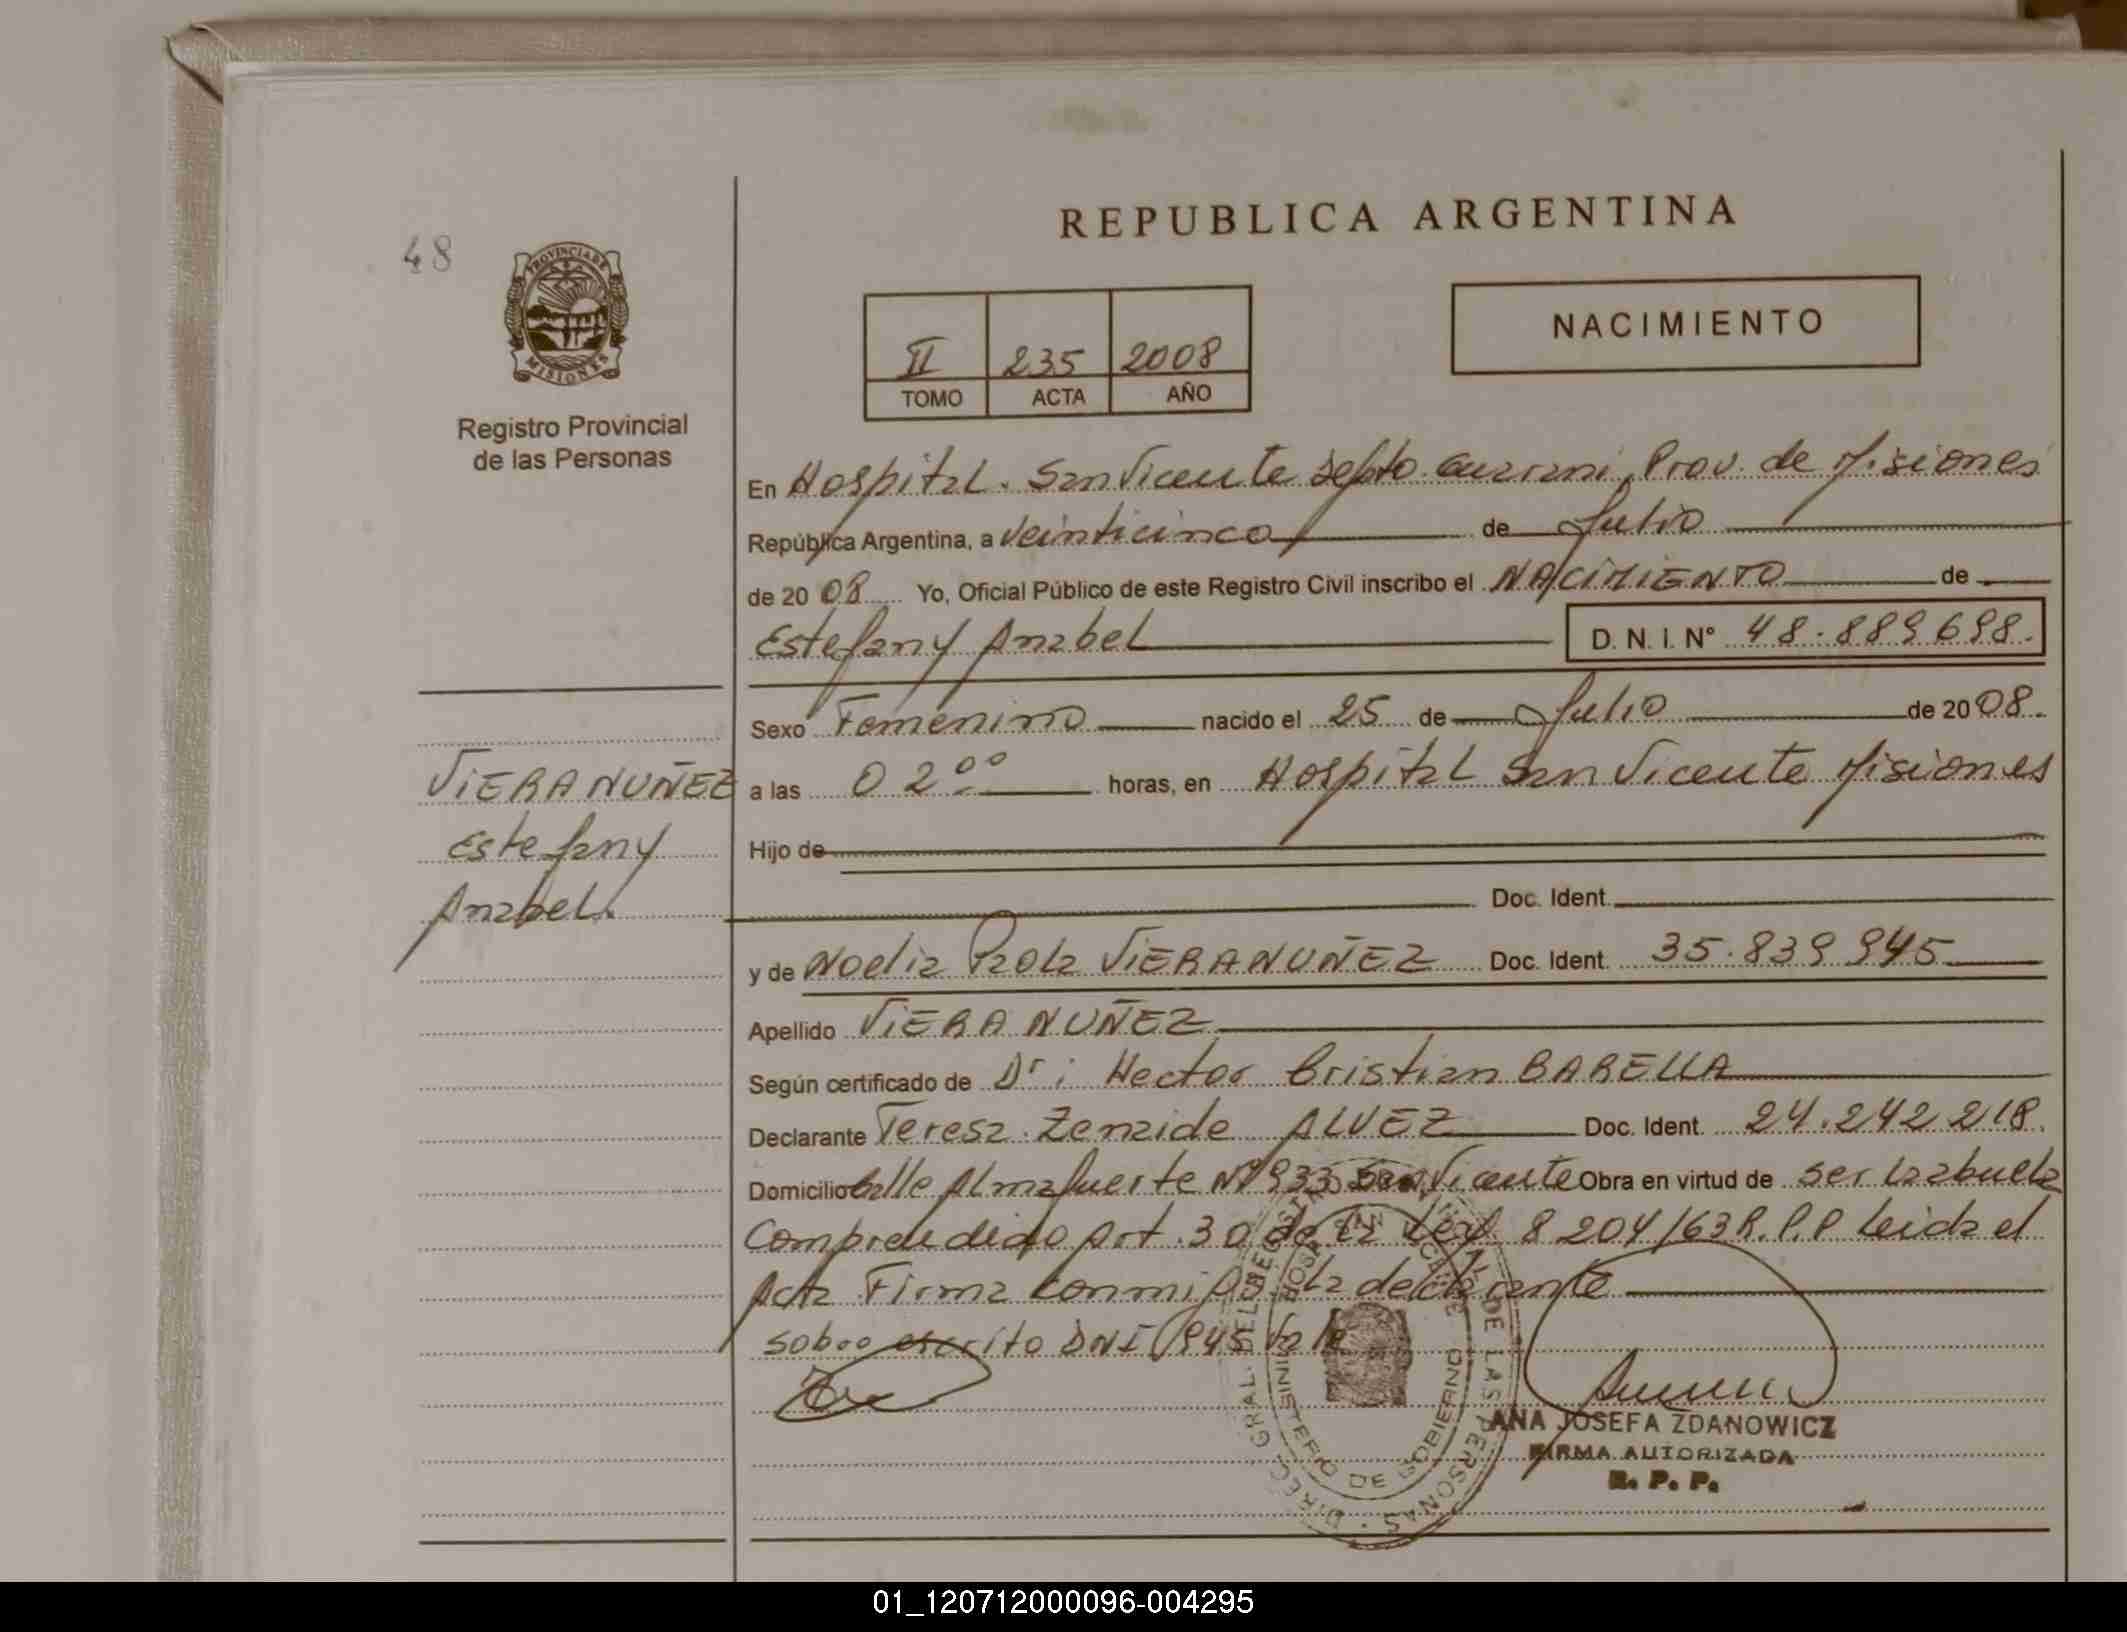 REPUBLICA ARGENTINA
48
PROVINCIA DE
MISIONES
Registro Provincial
de las Personas
II 235 2008
TOMO ACTA AÑO
NACIMIENTO
En Hospital. San Vicente Depto Guarani, Prov. de Misiones
República Argentina, a Veinticinco de Julio
de 2008 Yo, Oficial Público de este Registro Civil inscribo el NACIMIENTO de
Estefany Anabel D. N. I. N° 48.889698.
Sexo Femenino nacido el 25 de Julio de 2008.
VIERA NUÑEZ
Estefany
Anabel.
a las 02°° horas, en Hospital San Vicente Misiones
Hijo de
Doc. Ident.
y de Noelia Paola VIERA NUÑEZ Doc. Ident. 35.839945
Apellido VIERA NUÑEZ
Según certificado de Dr: Hector Cristian BARELLA
Declarante Teresa Zenaide ALVEZ Doc. Ident. 24.242218.
Domicilio Calle Almafuerte N° 933 San Vicente Obra en virtud de ser la abuela
Comprendido Art. 30 de la Ley 8204/63 R.P.P Leida el
Acta Firma conmigo la declarante
sobre escrito DNI 945 Vale
ANA JOSEFA ZDANOWICZ
FIRMA AUTORIZADA
R. P. P.
MINISTERIO DE GOBIERNO
01_120712000096-004295